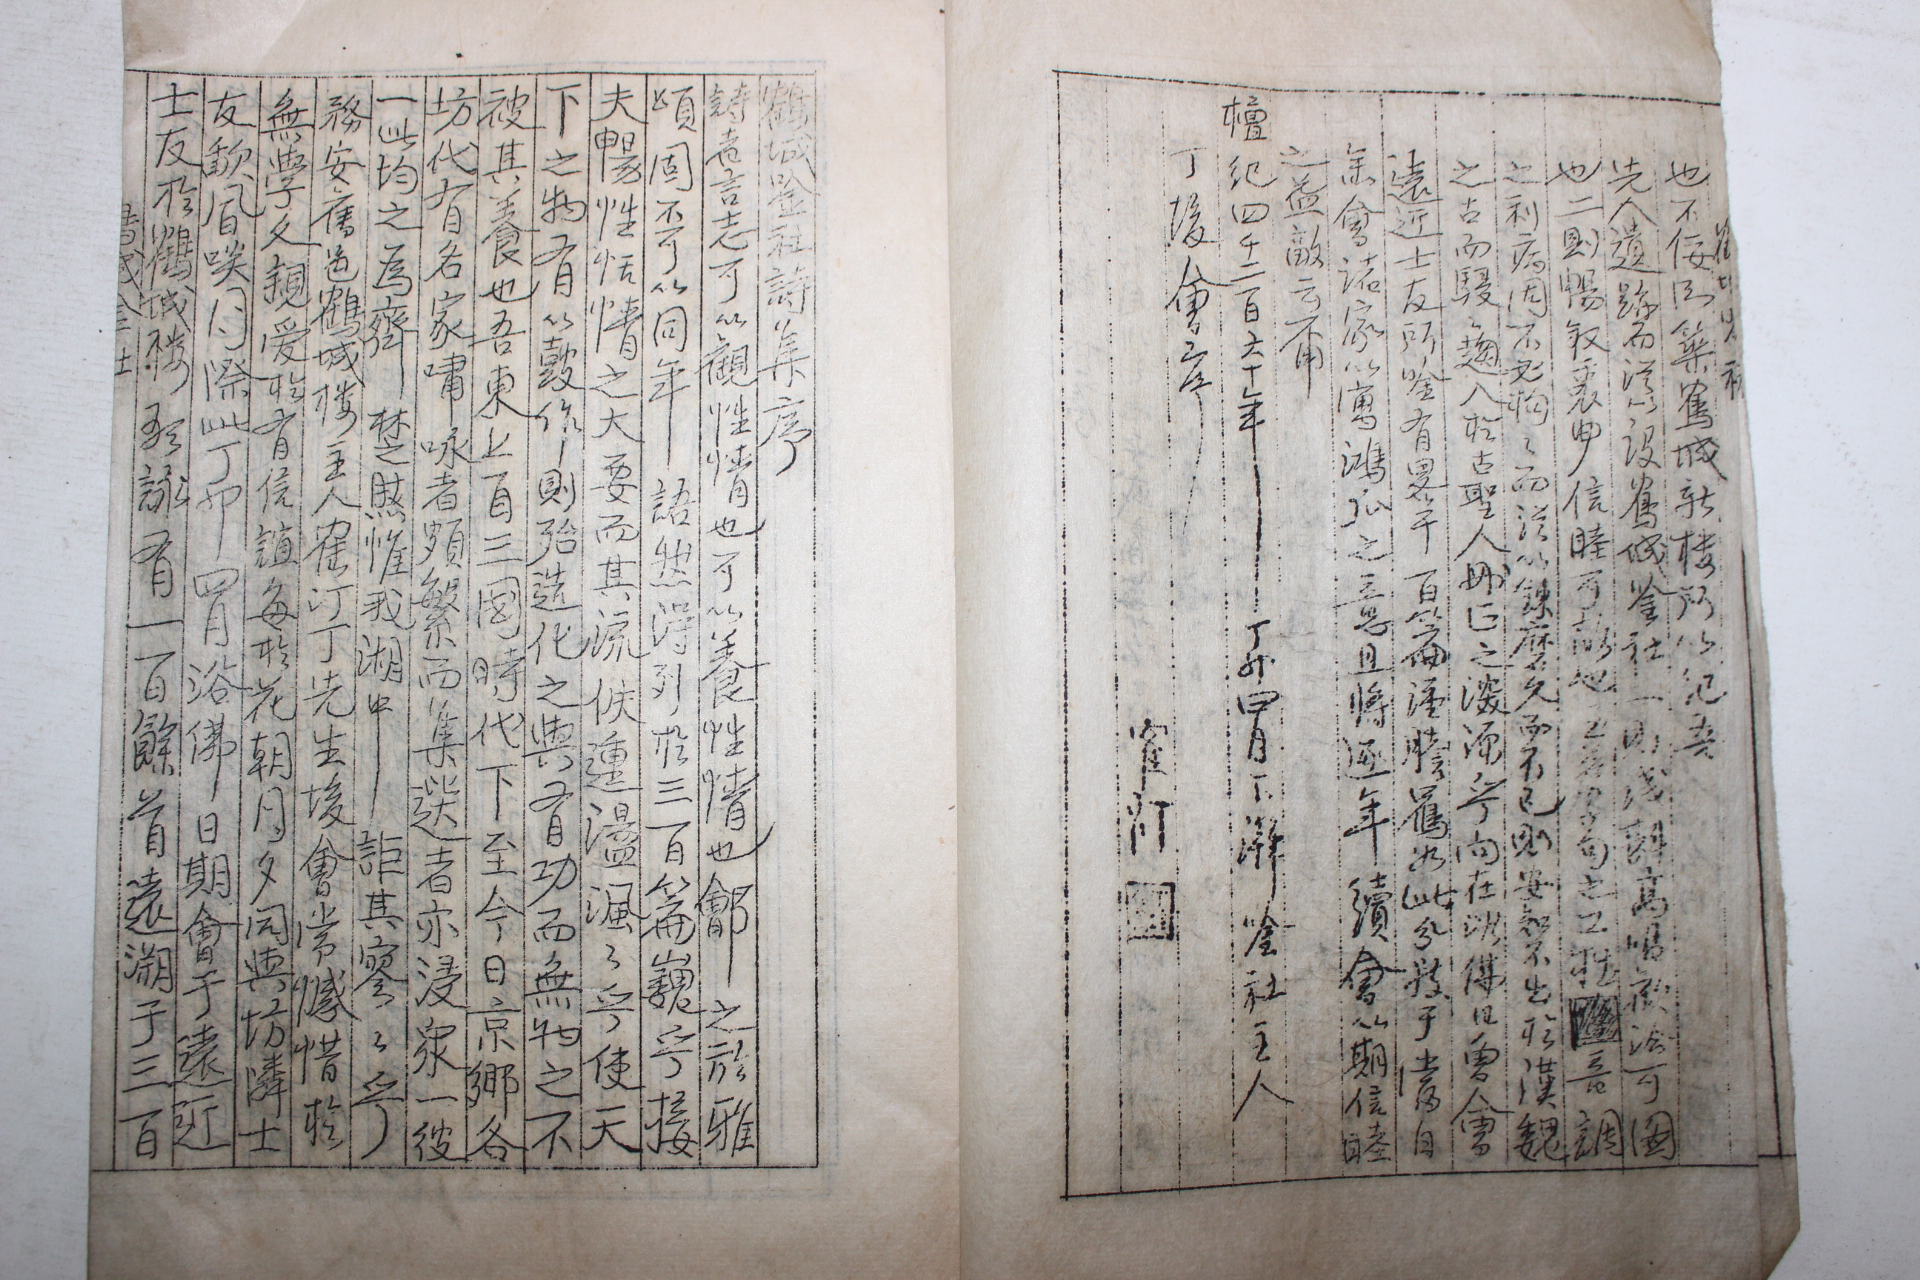 也不佞因築鶴城新樓所以紀吾
先人遺蹟而從以設鶴城唫社一則淺斟高唱歡洽可圖
也二則暢敍衷曲信睦可說也至若字句之工拙 音調
之利病因不必拘〻而從以鍊磨久而不已則安知不出於漢魏
之古而駸〻趨入於古聖人刪正之淵源乎向在洪僕且曾會
遠近士友所唫有累千百篇謹謄舊如此分發于當日
參會諸家以寓鴻爪之意且將逐年續會以期信睦
之益敵云爾
檀紀四千二百六十年丁卯四月下澣唫社主人
丁垵會序
崔汀
鶴城唫社詩集序
詩者言志可以觀性情也可以養性情也鄶之於雅
頌固不可以同年語然得列於三百篇巍乎接
夫暢性恬情之大要而其流佚運溫渢〻乎使天
下之物有以鼓作則殆造化之與有功而無物之不
被其養也吾東上自三國時代下至今日京鄉各
坊代有名家嘯咏者頗繁而集選者亦浸衆一彼
一此均之爲齊楚然惟我湖中詎其寥〻乎
務安舊邑鶴城樓主人崔汀丁先生垵會常慽惜於
無學久親愛於有信誼每於花朝月夕同與坊隣士
友歡風眉啖月際此丁卯四月浴佛日期會于遠近
士友於鶴城樓 吟詠有一百餘首遠溯于三百